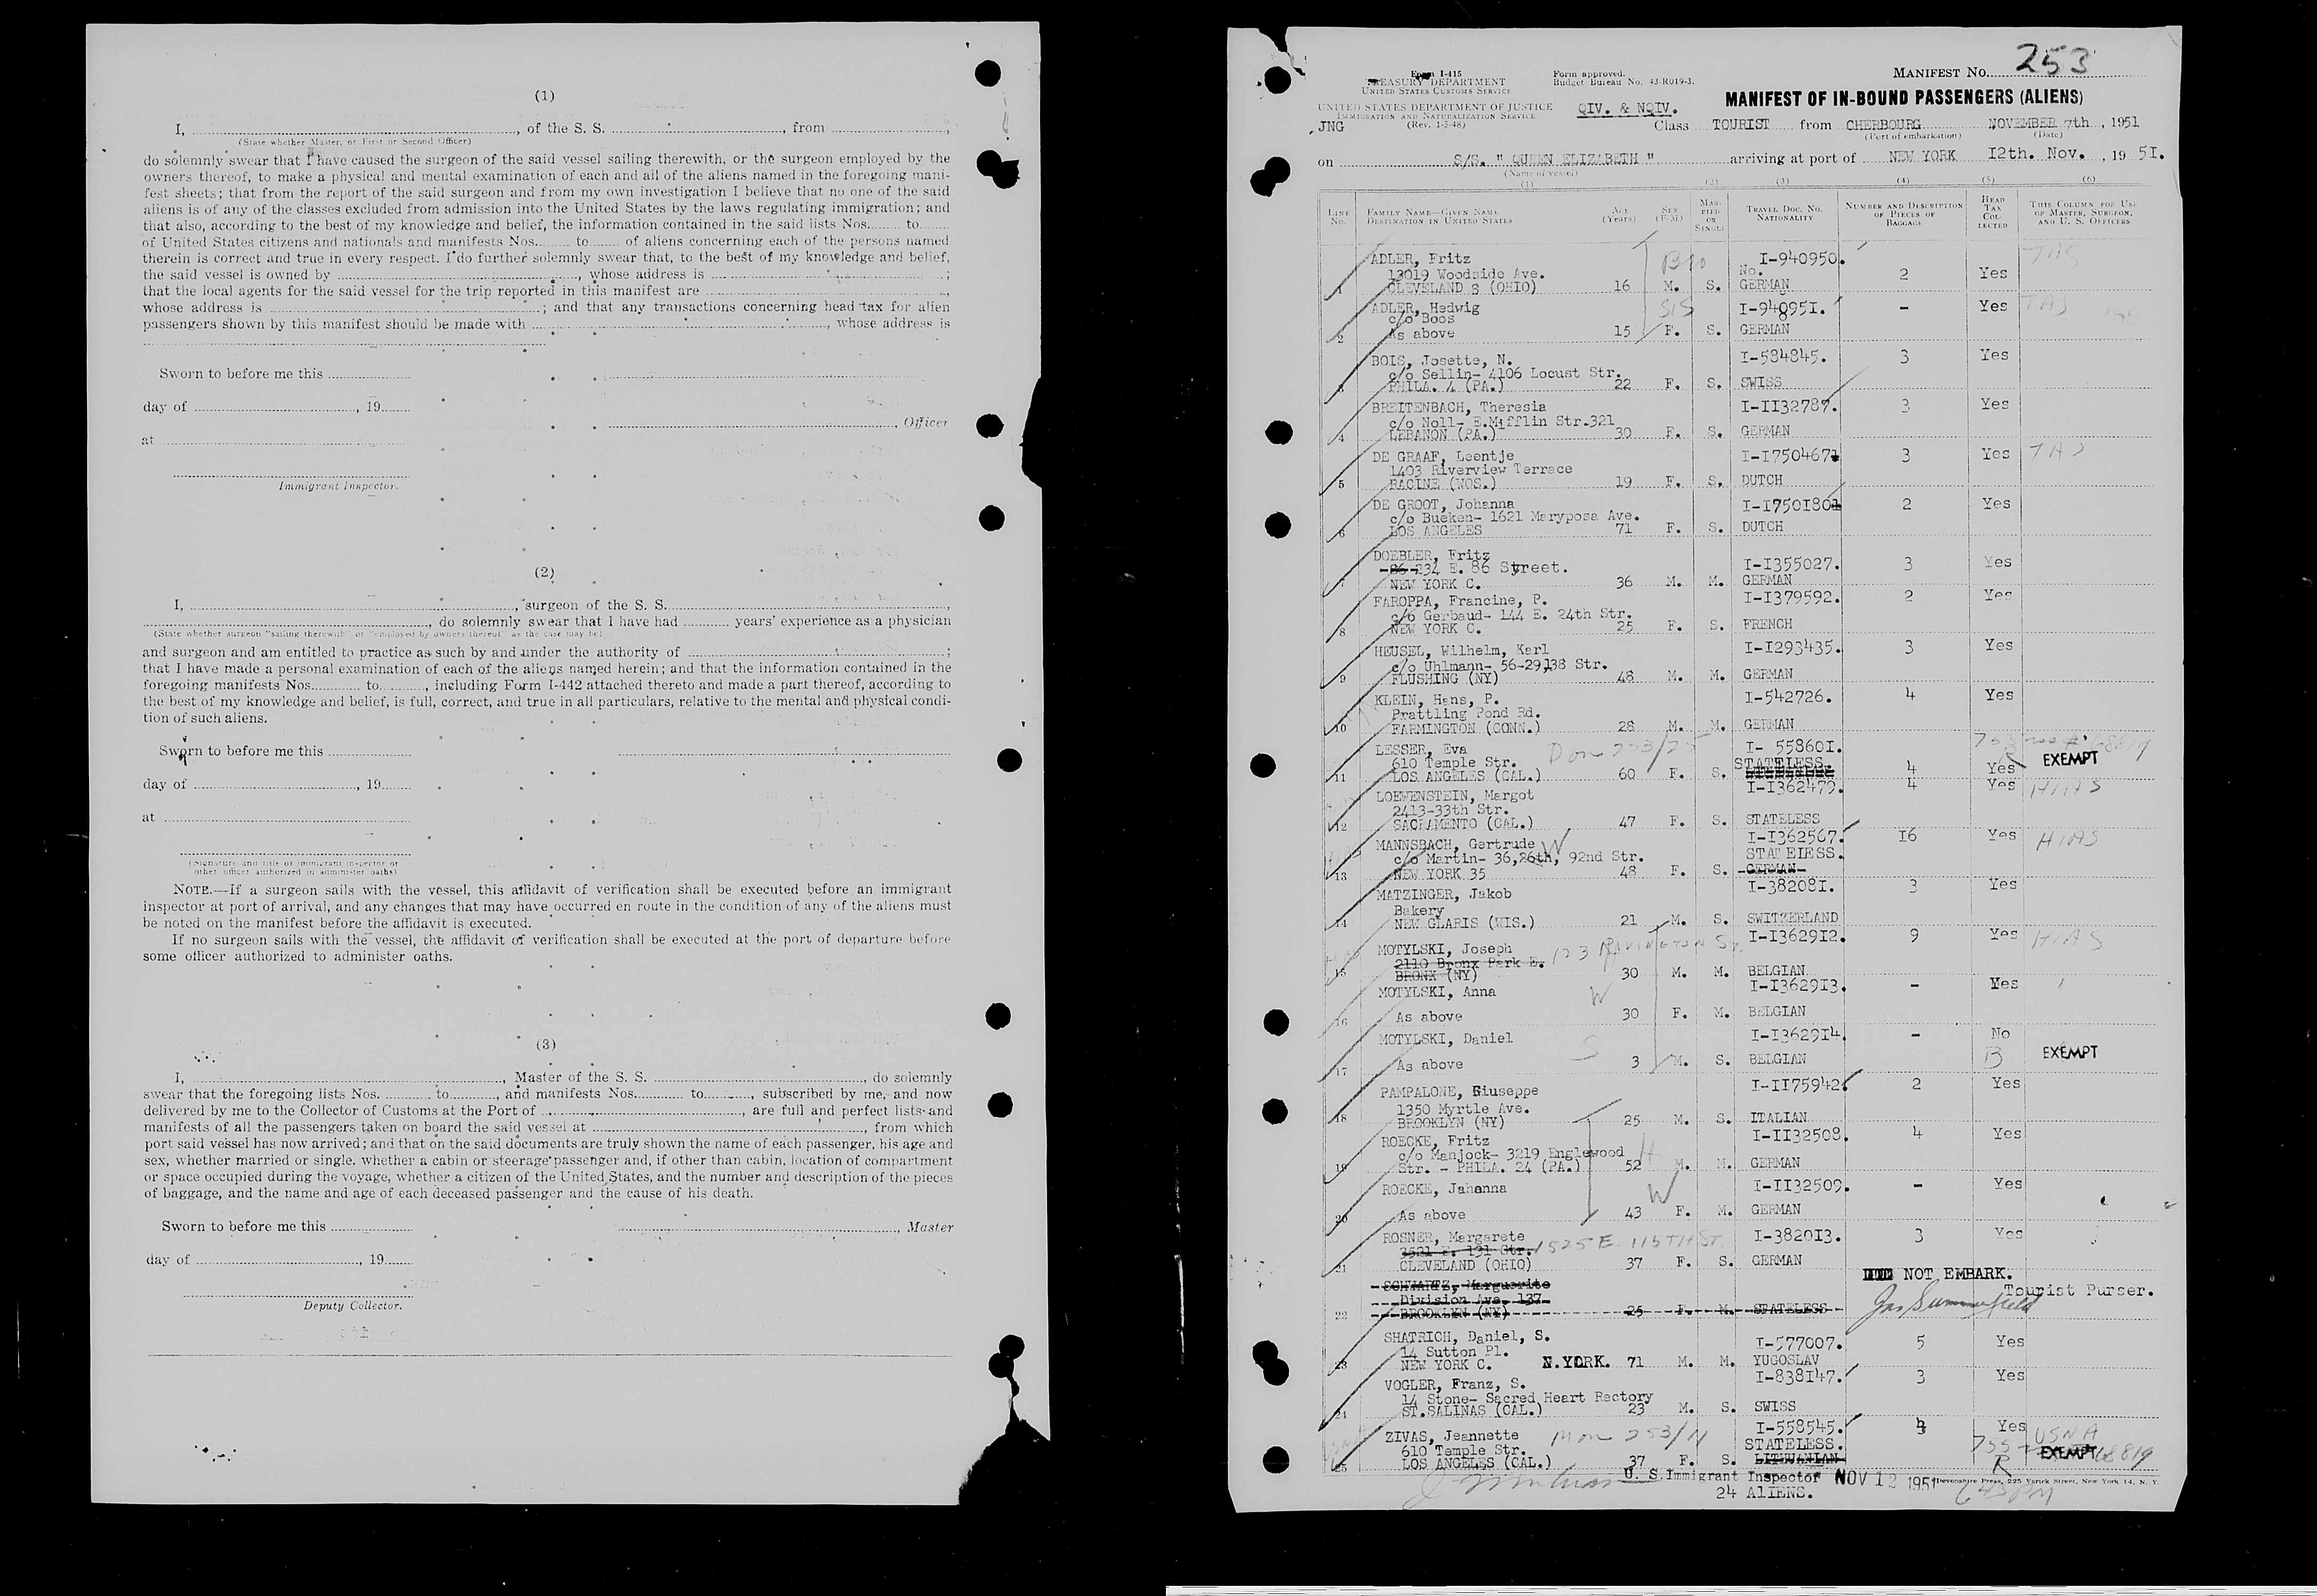 (1)
I, , of the S. S. , from ,
(State whether Master, or First or Second Officer)
do solemnly swear that I have caused the surgeon of the said vessel sailing therewith, or the surgeon employed by the
owners thereof, to make a physical and mental examination of each and all of the aliens named in the foregoing mani-
fest sheets; that from the report of the said surgeon and from my own investigation I believe that no one of the said
aliens is of any of the classes excluded from admission into the United States by the laws regulating immigration; and
that also, according to the best of my knowledge and belief, the information contained in the said lists Nos. to
of United States citizens and nationals and manifests Nos. to of aliens concerning each of the persons named
therein is correct and true in every respect. I do further solemnly swear that, to the best of my knowledge and belief,
the said vessel is owned by , whose address is ;
that the local agents for the said vessel for the trip reported in this manifest are ,
whose address is ; and that any transactions concerning head tax for alien
passengers shown by this manifest should be made with , whose address is
Sworn to before me this
day of , 19
, Officer
at
Immigrant Inspector.
(2)
I, , surgeon of the S. S. ,
, do solemnly swear that I have had years' experience as a physician
(State whether surgeon "sailing therewith" or "employed by owners thereof" as the case may be)
and surgeon and am entitled to practice as such by and under the authority of ;
that I have made a personal examination of each of the aliens named herein; and that the information contained in the
foregoing manifests Nos. to , including Form I-442 attached thereto and made a part thereof, according to
the best of my knowledge and belief, is full, correct, and true in all particulars, relative to the mental and physical condi-
tion of such aliens.
Sworn to before me this
day of , 19
at
(Signature and title of immigrant inspector or
other officer authorized to administer oaths)
NOTE.—If a surgeon sails with the vessel, this affidavit of verification shall be executed before an immigrant
inspector at port of arrival, and any changes that may have occurred en route in the condition of any of the aliens must
be noted on the manifest before the affidavit is executed.
If no surgeon sails with the vessel, the affidavit of verification shall be executed at the port of departure before
some officer authorized to administer oaths.
(3)
I, , Master of the S. S. , do solemnly
swear that the foregoing lists Nos. to , and manifests Nos. to , subscribed by me, and now
delivered by me to the Collector of Customs at the Port of , are full and perfect lists and
manifests of all the passengers taken on board the said vessel at , from which
port said vessel has now arrived; and that on the said documents are truly shown the name of each passenger, his age and
sex, whether married or single, whether a cabin or steerage passenger and, if other than cabin, location of compartment
or space occupied during the voyage, whether a citizen of the United States, and the number and description of the pieces
of baggage, and the name and age of each deceased passenger and the cause of his death.
Sworn to before me this , Master
day of , 19
Deputy Collector.
Form I-415
TREASURY DEPARTMENT
UNITED STATES CUSTOMS SERVICE
UNITED STATES DEPARTMENT OF JUSTICE
IMMIGRATION AND NATURALIZATION SERVICE
(Rev. 1-5-48)
JNG
Form approved.
Budget Bureau No. 43-R019-3.
QIV. & NQIV.
MANIFEST No. 253
MANIFEST OF IN-BOUND PASSENGERS (ALIENS)
Class TOURIST from CHERBOURG NOVEMBER 7th , 1951
(Port of embarkation) (Date)
on S/S. " QUEEN ELIZABETH " arriving at port of NEW YORK 12th. Nov. , 19 51.
(Name of vessel)
(1) (2) (3) (4) (5) (6)
LINE No. FAMILY NAME—GIVEN NAME DESTINATION IN UNITED STATES AGE (Years) SEX (F-M) MARRIED OR SINGLE TRAVEL DOC. No. NATIONALITY NUMBER AND DESCRIPTION OF PIECES OF BAGGAGE HEAD TAX COLLECTED THIS COLUMN FOR USE OF MASTER, SURGEON, AND U. S. OFFICERS
ADLER, Fritz Bro I-940950. TAS
13019 Woodside Ave. No. 2 Yes
1 CLEVELAND 8 (OHIO) 16 M. S. GERMAN
ADLER, Hedwig SiS I-940951. - Yes TAS
c/o Boos
2 As above 15 F. S. GERMAN
BOIS, Josette, N. I-584845. 3 Yes
c/o Sellin- 4106 Locust Str.
3 PHILA. 4 (PA.) 22 F. S. SWISS
BREITENBACH, Theresia I-II32787. 3 Yes
c/o Noll- E.Mifflin Str.321
4 LEBANON (PA.) 30 F. S. GERMAN
DE GRAAF, Leentje I-I750467 3 Yes TAS
1403 Riverview Terrace
5 RACINE (WOS.) 19 F. S. DUTCH
DE GROOT, Johanna I-I750180 2 Yes
c/o Bueken- 1621 Maryposa Ave.
6 LOS ANGELES 71 F. S. DUTCH
DOEBLER, Fritz I-I355027. 3 Yes
234 E. 86 Street.
7 NEW YORK C. 36 M. M. GERMAN
FAROPPA, Francine, P. I-I379592. 2 Yes
c/o Gerbaud- 144 E. 24th Str.
8 NEW YORK C. 25 F. S. FRENCH
HEUSEL, Wilhelm, Karl I-I293435. 3 Yes
c/o Uhlmann- 56-29,138 Str.
9 FLUSHING (NY) 48 M. M. GERMAN
KLEIN, Hans, P. I-542726. 4 Yes
Prattling Pond Rd.
10 FARMINGTON (CONN.) 28 M. M. GERMAN
LESSER, Eva D on 253/25 I- 558601.
610 Temple Str. STATELESS. EXEMPT
11 LOS ANGELES (CAL.) 60 F. S. 4 Yes
LOEWENSTEIN, Margot I-I362479. 4 Yes HIAS
2413-33th Str.
12 SACRAMENTO (CAL.) 47 F. S. STATELESS
MANNSBACH, Gertrude W I-I362567. 16 Yes HIAS
c/o Martin- 36,26th, 92nd Str. STATEIESS.
13 NEW YORK 35 48 F. S. GERMAN
MATZINGER, Jakob I-382081. 3 Yes
Bakery
14 NEW GLARIS (WIS.) 21 M. S. SWITZERLAND
MOTYLSKI, Joseph 123 RAVINGTON St. I-I362912. 9 Yes HIAS
2110 Bronx Park E.
15 BRONX (NY) 30 M. M. BELGIAN
MOTYLSKI, Anna W I-I362913. - Yes
16 As above 30 F. M. BELGIAN
MOTYLSKI, Daniel S I-I362914. - No
17 As above 3 M. S. BELGIAN B EXEMPT
PAMPALONE, Giuseppe I-II75942. 2 Yes
1350 Myrtle Ave.
18 BROOKLYN (NY) 25 M. S. ITALIAN
ROECKE, Fritz H I-II32508. 4 Yes
c/o Manjock- 3219 Englewood
19 Str. - PHILA. 24 (PA.) 52 M. M. GERMAN
ROECKE, Jahanna W I-II32509. - Yes
20 As above 43 F. M. GERMAN
ROSNER, Margarete I-382013. 3 Yes
3521 E. 131 Str. 1525 E. 115TH ST.
21 CLEVELAND (OHIO) 37 F. S. GERMAN
SCHWARTZ, Marguerite DID NOT EMBARK.
Division Ave. 137 Tourist Purser.
22 BROOKLYN (NY) 25 F. M. STATELESS Jas Summerfield
SHATRICH, Daniel, S. I-577007. 5 Yes
14 Sutton Pl.
23 NEW YORK C. N.YORK. 71 M. M. YUGOSLAV
VOGLER, Franz, S. I-838147. 3 Yes
14 Stone- Sacred Heart Rectory
24 ST.SALINAS (CAL.) 23 M. S. SWISS
ZIVAS, Jeannette M on 253/11 I-558545. Yes USNA
610 Temple Str. STATELESS. EXEMPT
25 LOS ANGELES (CAL.) 37 F. S. LITHUANIAN R
U. S. Immigrant Inspector NOV 12 1951 Devonshire Press, 225 Varick Street, New York 14, N. Y.
24 ALIENS.